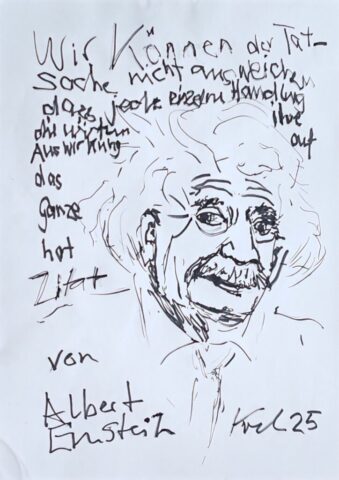 Wir Können der Tat-
sache nicht ausweichen
dass jede einzelne Handlung
die wir tun ihre
Auswirkung auf
das
ganze
hat
Zitat
von
Albert
Einstein
25